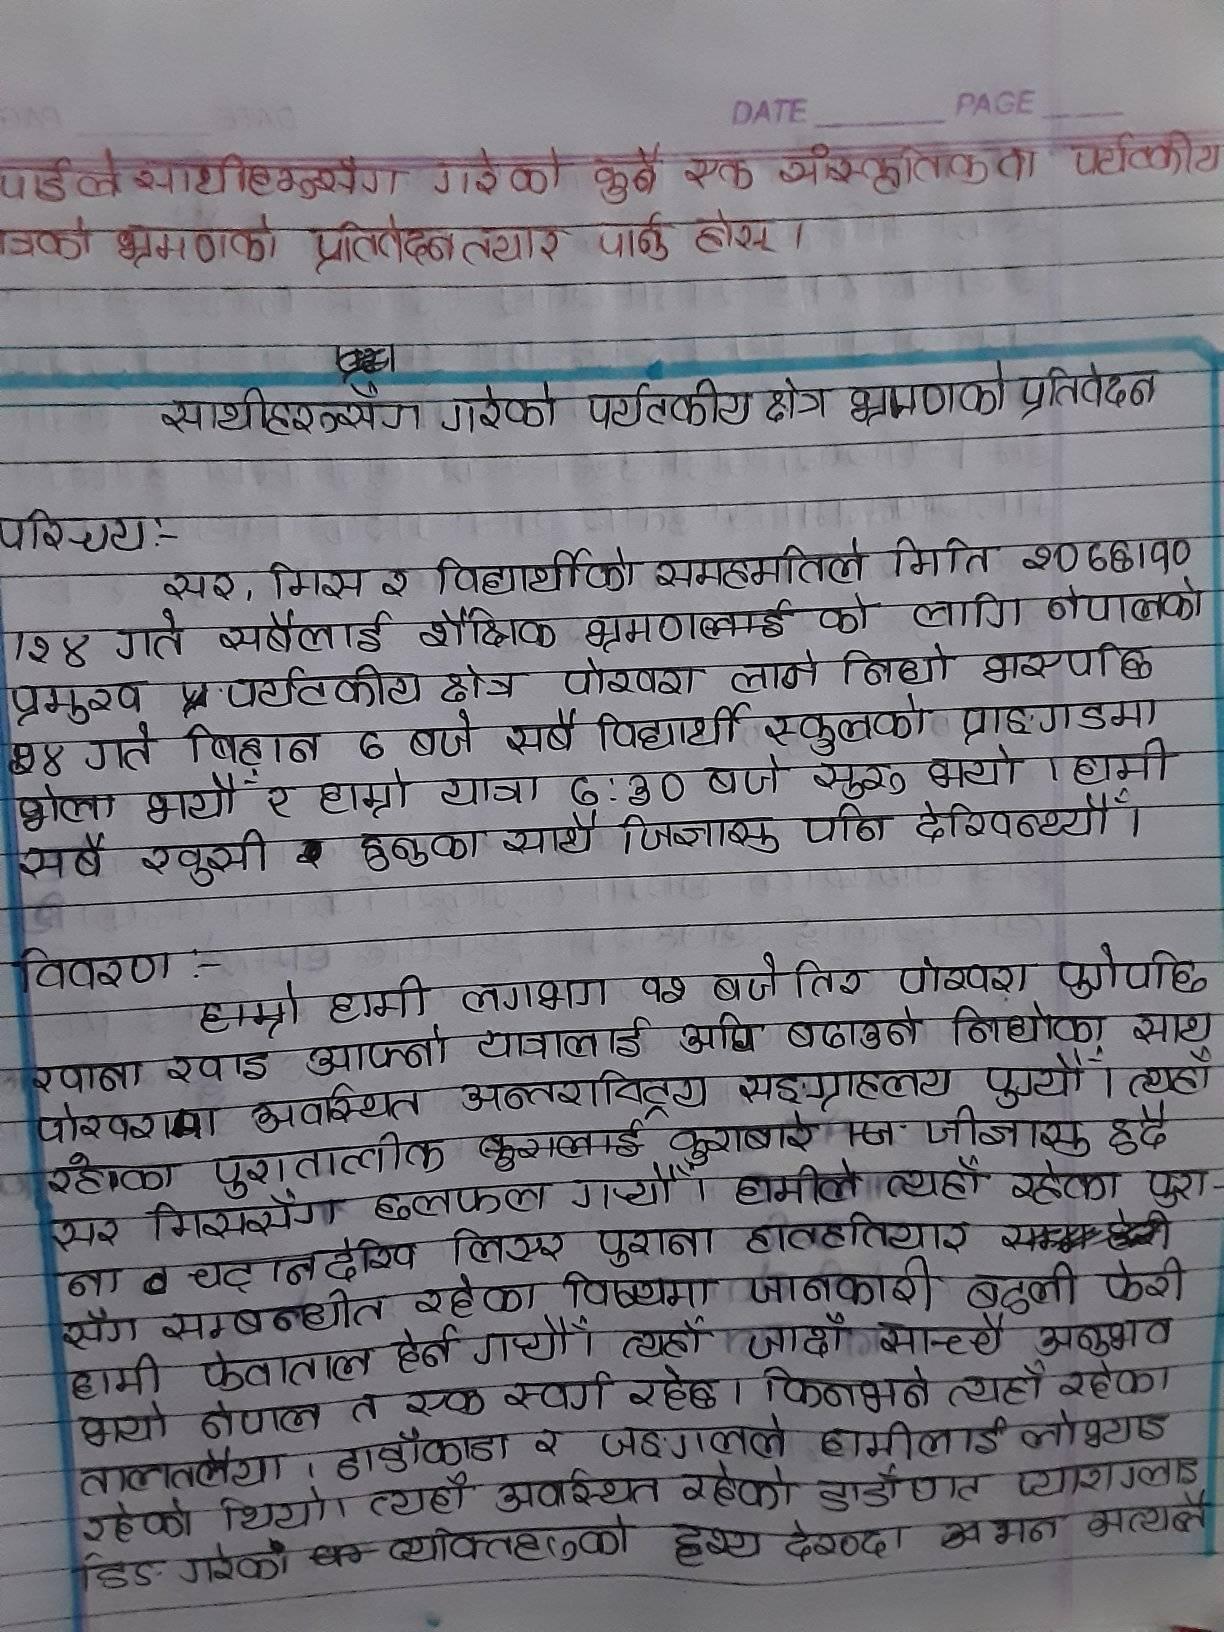 DATE PAGE
पाईले साथीहरूसँग गरेको कुनै एक साँस्कृतिक वा पर्यटकीय
त्रको भ्रमणको प्रतिवेदन तयार पार्नु होस् ।
साथीहरूसँग गरेको पर्यटकीय क्षेत्र भ्रमणको प्रतिवेदन
परिचय:-
सर, मिस र विद्यार्थीको समहमतिले मिति २०७७।१०
।२४ गते सबैलाई शैक्षिक भ्रमण को लागि नेपालको
प्रमुख पर्यटकीय क्षेत्र पोखरा लाने निधो भएपछि
२४ गते बिहान ६ बजे सबै विद्यार्थी स्कुलको प्राङ्गडमा
भेला भयौँ र हाम्रो यात्रा ६:३० बजे सुरु भयो । हामी
सबै खुसी हुनुका साथै जिज्ञासु पनि देखिन्थ्यौँ ।
विवरण :-
हाम्रो हामी लगभग १२ बजे तिर पोखरा पुगेपछि
खाना खाइ आफ्नो यात्रालाई अघि बढाउने निधोका साथ
पोखरामा अवस्थित अन्तराष्ट्रिय सङ्ग्राहलय पुग्यौँ । त्यहाँ
रहेका पुरातालीक कुराबारे जीज्ञासु हुदै
सर मिससँग छलफल गर्‍यौँ । हामीले त्यहाँ रहेका पुरा-
ना चट्टानदेखि लिएर पुराना हातहतियार
सँग सम्बन्धीत रहेका विषयमा जानकारी बटुली फेरी
हामी फेवाताल हेर्न गयौँ । त्यहाँ जादाँ साच्चै अनुभव
भयो नेपाल त एक स्वर्ग रहेछ । किनभने त्यहाँ रहेका
तालतलैया, डाडाँकाडा र जङ्गलले हामीलाई लोभ्याइ
रहेको थियो । त्यहाँ अवस्थित रहेको डाडाँबाट प्याराग्लाइ
डिङ गरेको व्यक्तिहरूको दृश्य देख्दा मन